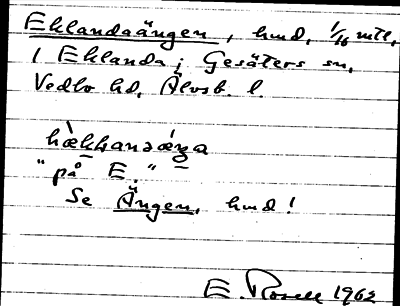 Eklandaängen, hmd, 1/16 mtl,
i Eklanda; Gesäters sn,
Vedbo hd, Älvsb. l.
"på E."
Se Ängen, hmd!
E. Rosell 1962